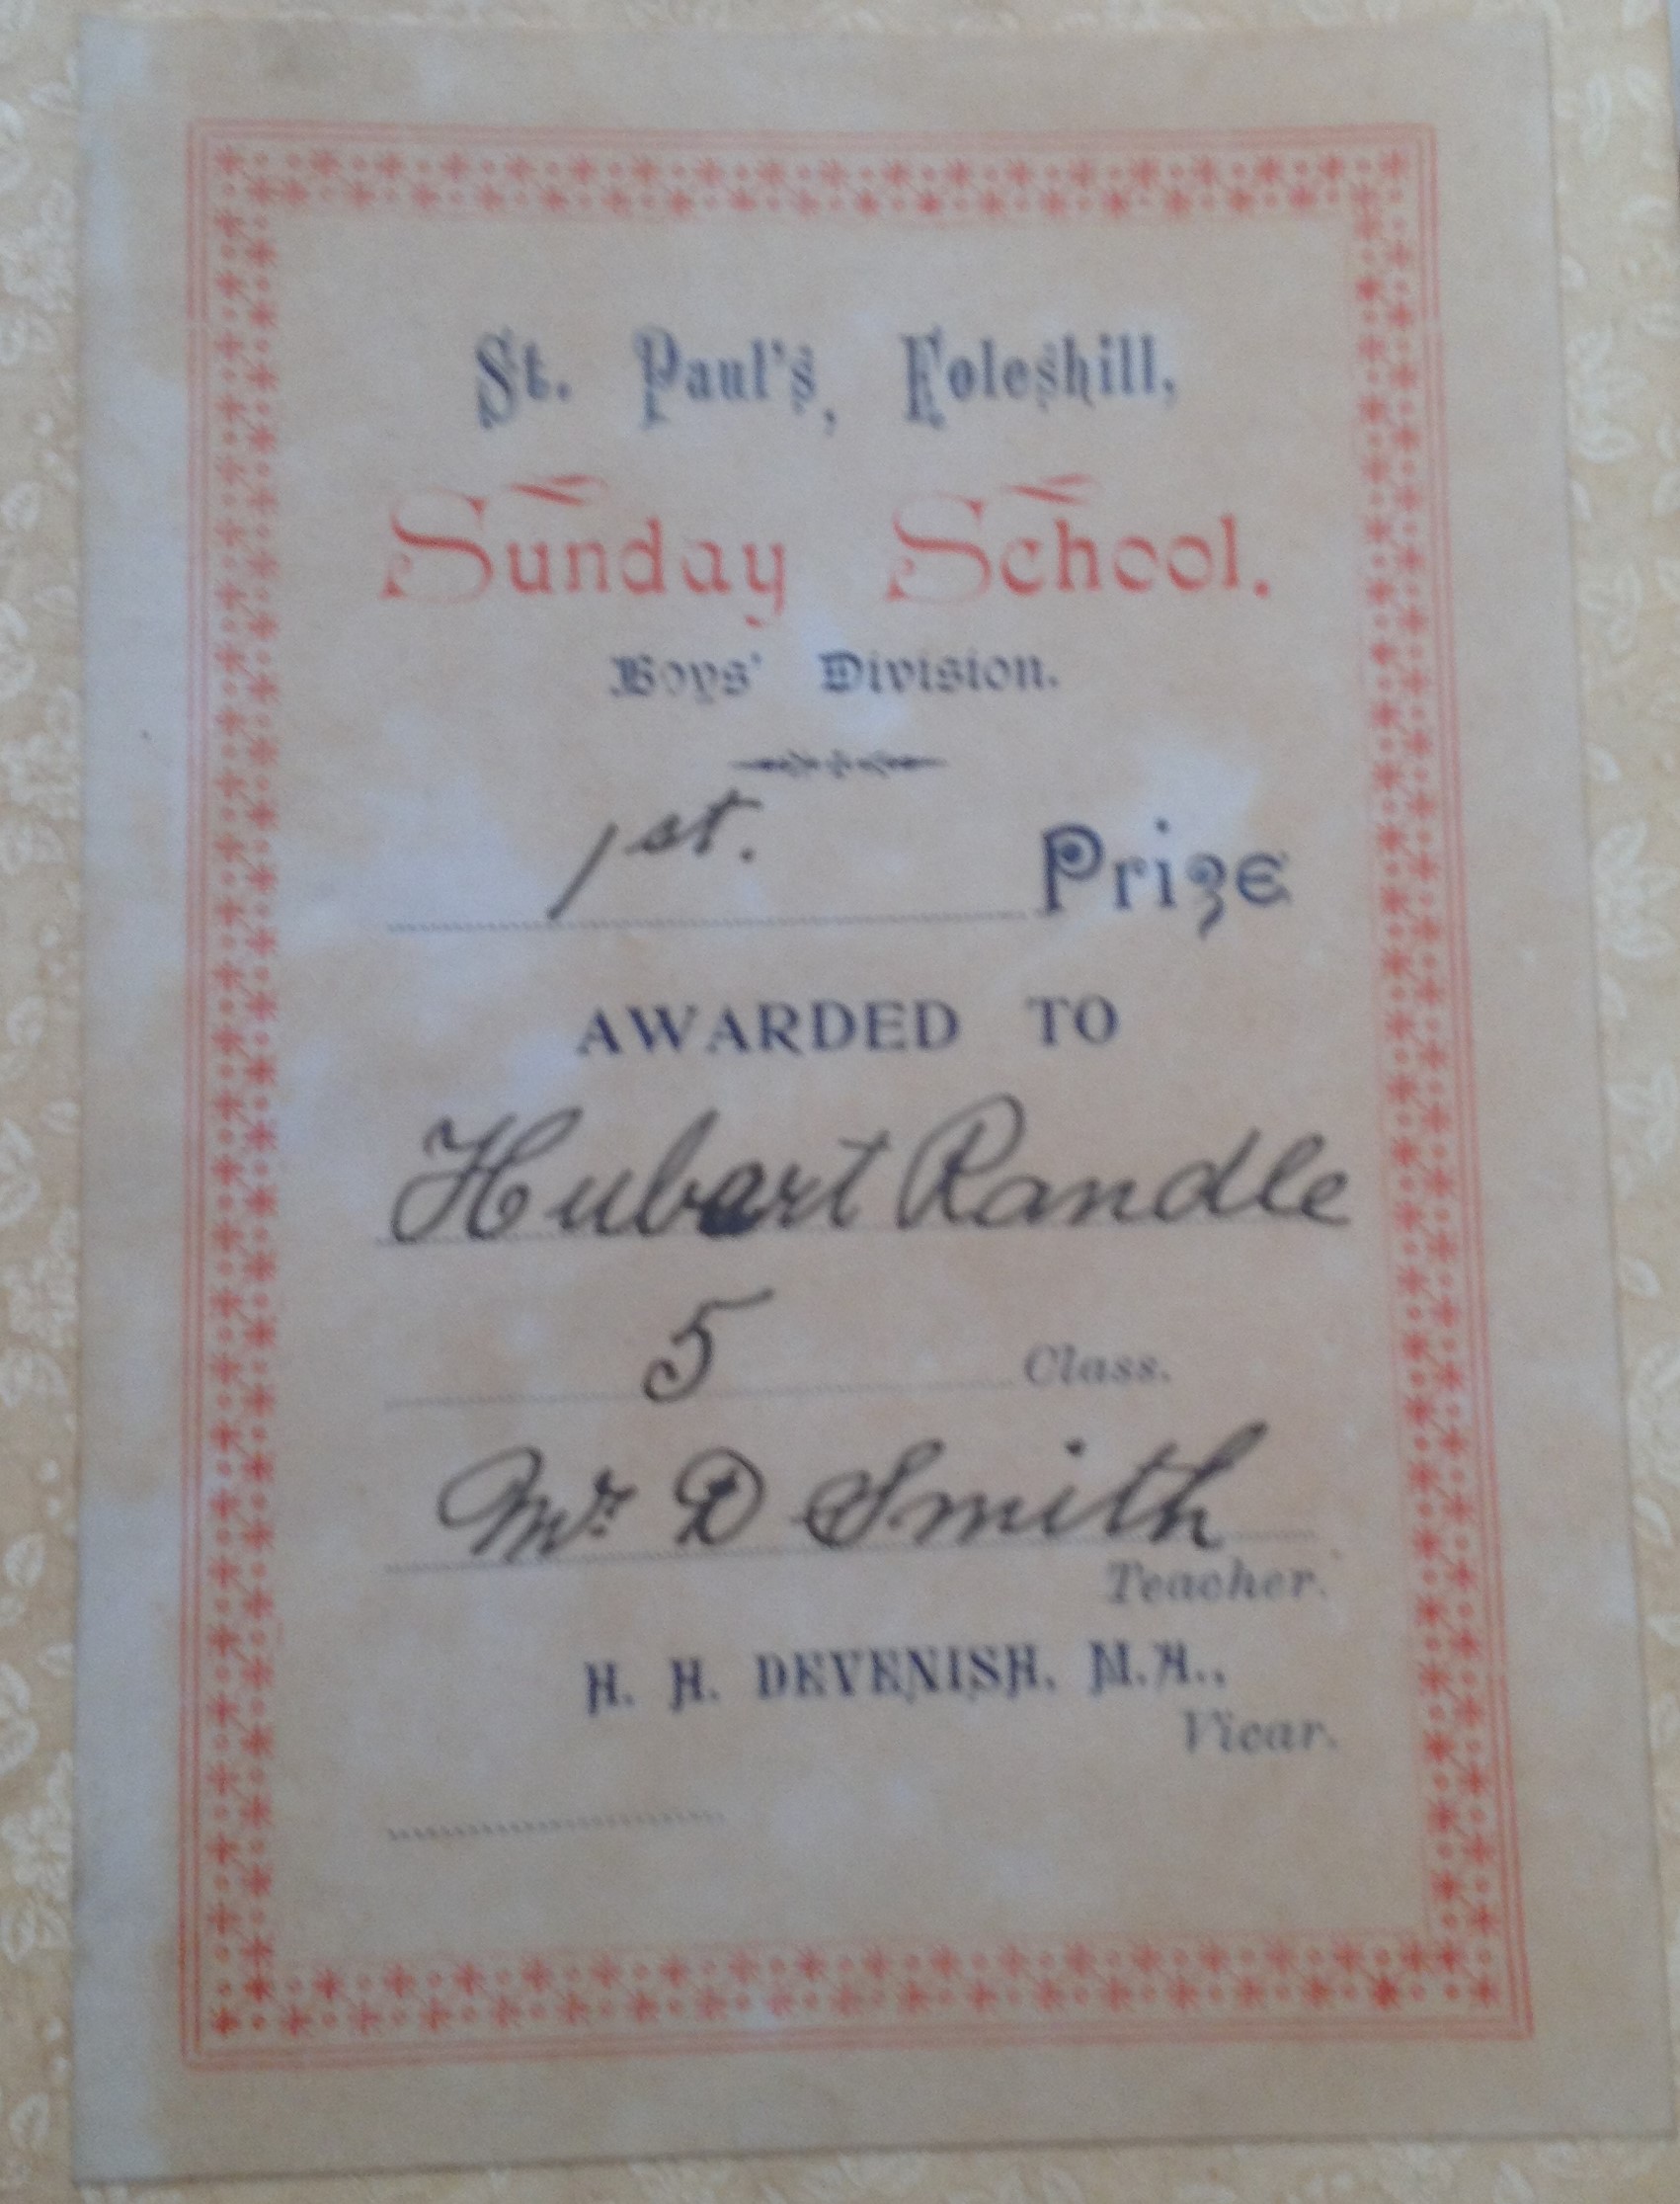 St. Paul's, Foleshill,
Sunday School.
Boys' Division.
1st. Prize
AWARDED TO
Hubart Randle
5 Class.
Mr. D Smith
Teacher.
H. H. DEVENISH, M.A.,
Vicar.